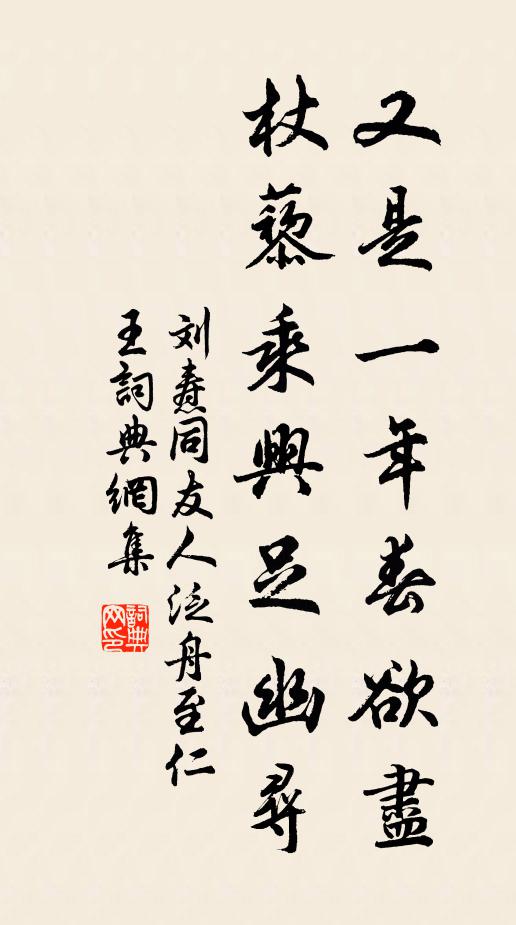 又是一年春欲盡
杖藜乘興足幽尋
刘焘同友人泛舟至仁
王詞典網集
詞典
网印